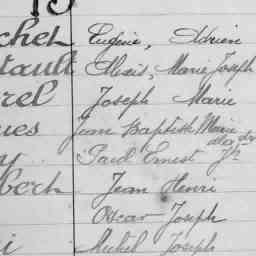 13
chet Eugène, Adrien
tault Alexis, Marie Joseph
rel Joseph Marie
ues Jean Baptiste Marie
y Paul Ernest
bert Jean Henri
Oscar Joseph
i Michel Joseph